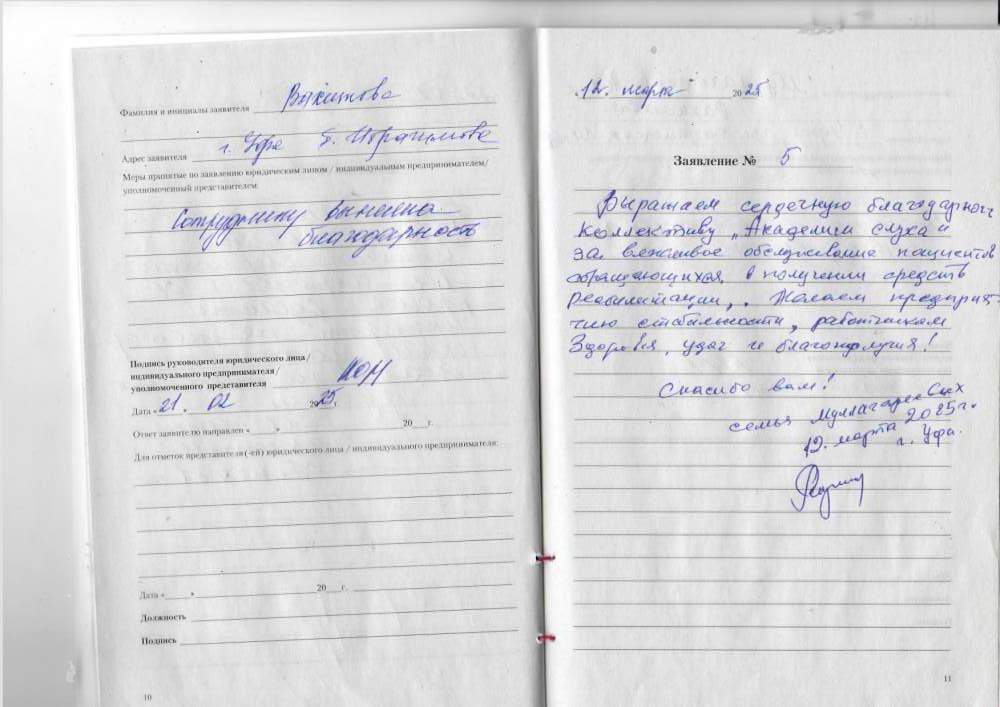 Фамилия и инициалы заявителя
Адрес заявителя г. Уфа
Меры принятые по заявлению юридическим лицом / индивидуальным предпринимателем/
уполномоченный представителем:
Сотруднику вынесена
благодарность
Подпись руководителя юридического лица/
индивидуального предпринимателя/
уполномоченного представителя
Дата «21. 02 2025г.
Ответ заявителю направлен «____» 20___г.
Для отметок представителя(-ей) юридического лица / индивидуального предпринимателя:
Дата «____» 20___г.
Должность
Подпись
10
12. марта 2025
Заявление № 5
Выражаем сердечную благодарность
коллективу „Академии слуха"
за вежливое обслуживание пациентов
обращающихся в получении средств
реабилитации,. Желаем предприя-
тию стабильности, работникам
Здоровья, удач и благополучия!
Спасибо вам!
семья
12. марта 2025г.
г. Уфа.
11